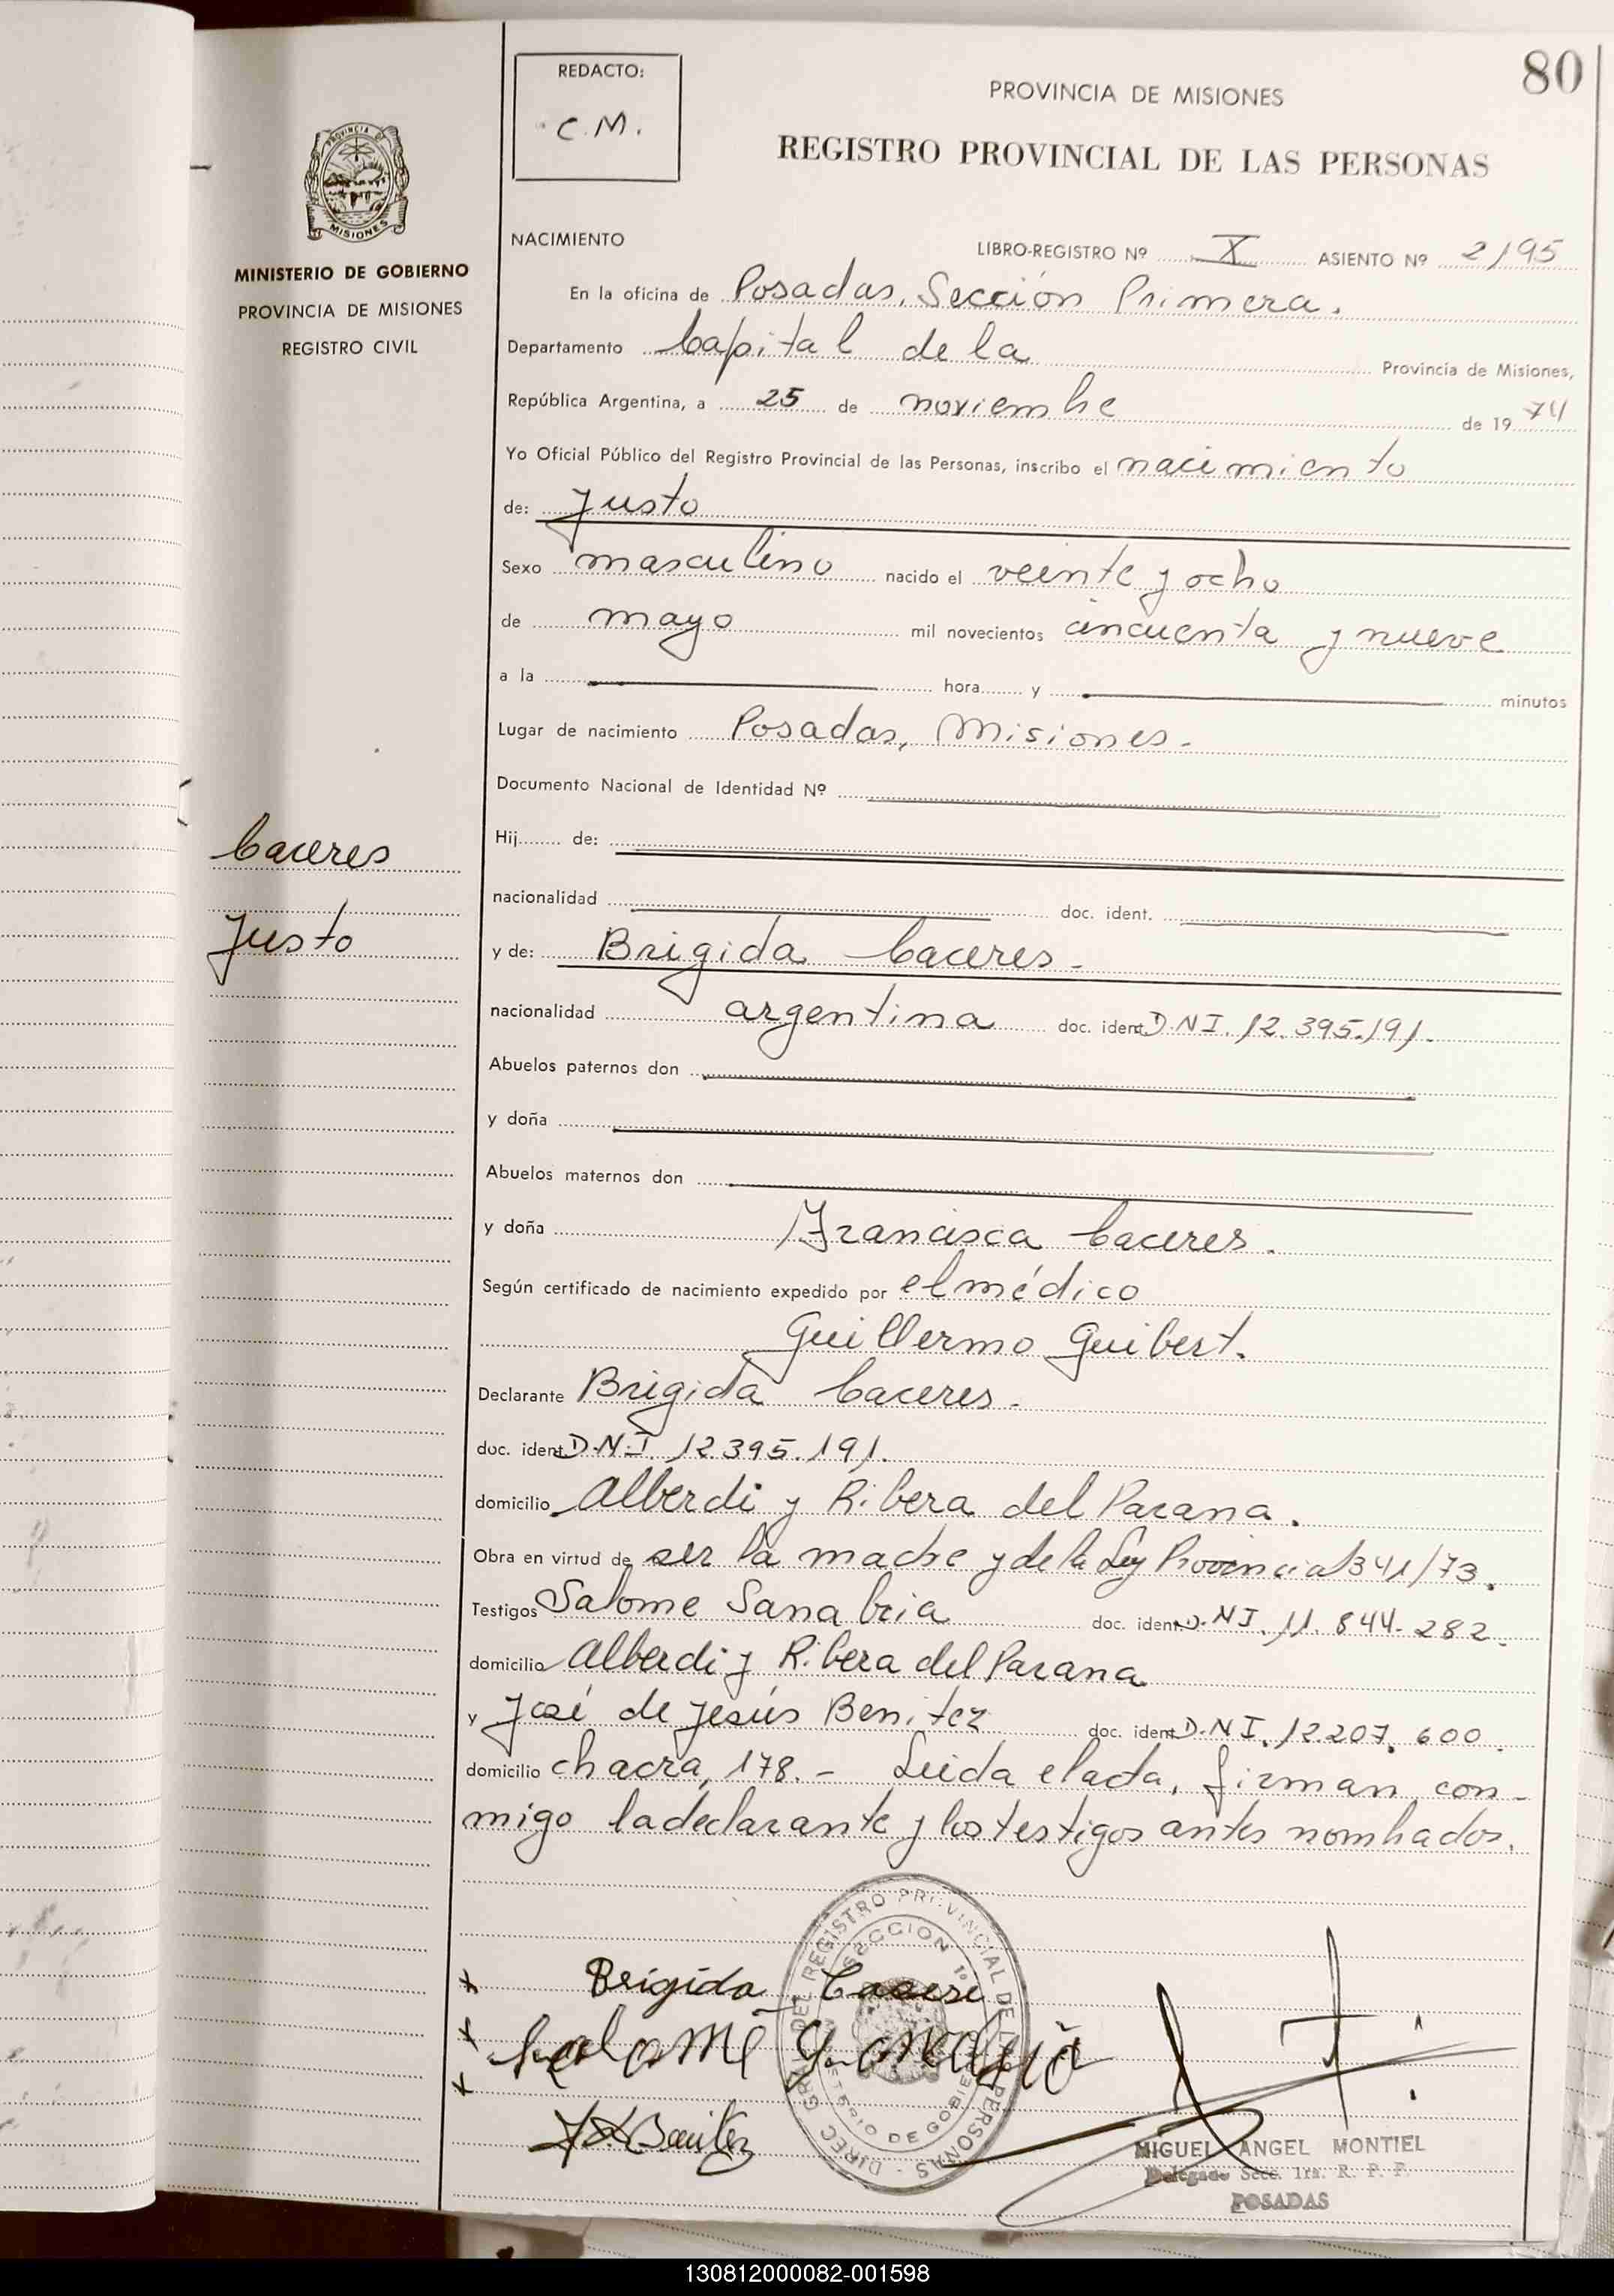 80
REDACTO:
C.M.
PROVINCIA DE MISIONES
REGISTRO PROVINCIAL DE LAS PERSONAS
MISIONES
MINISTERIO DE GOBIERNO
PROVINCIA DE MISIONES
REGISTRO CIVIL
NACIMIENTO LIBRO-REGISTRO Nº X ASIENTO Nº 2195
En la oficina de Posadas, Sección Primera.
Departamento Capital de la Provincia de Misiones,
República Argentina, a 25 de noviembre de 1974
Yo Oficial Público del Registro Provincial de las Personas, inscribo el nacimiento
de: Justo
Sexo masculino nacido el veinte y ocho
de mayo mil novecientos cincuenta y nueve
a la hora y minutos
Lugar de nacimiento Posadas, Misiones.
Documento Nacional de Identidad Nº
Hij de:
nacionalidad doc. ident.
Caceres
Justo
y de: Brigida Caceres.
nacionalidad argentina doc. ident D.N.I. 12.395.191.
Abuelos paternos don
y doña
Abuelos maternos don
y doña Francisca Caceres.
Según certificado de nacimiento expedido por el médico
Guillermo Guibert.
Declarante Brigida Caceres.
doc. ident D.N.I. 12.395.191.
domicilio Alberdi y Ribera del Parana.
Obra en virtud de ser la madre y de la Ley Provincial 341/73.
Testigos Salome Sanabria doc. ident D.N.I. 11.844.282.
domicilio Alberdi y Ribera del Parana
y José de Jesús Benitez doc. ident D.N.I. 12.207.600.
domicilio chacra, 178.- Leida el acta, firman con-
migo la declarante y los testigos antes nombrados.
DIREC. GRAL. DEL REGISTRO PROVINCIAL DE LAS PERSONAS
SECCION 1º
MINISTERIO DE GOBIERNO
Brigida Caseri
Salomé Sanabria
J Benitez
MIGUEL ANGEL MONTIEL
Delegado Secc. 1ra. R. P. P.
POSADAS
130812000082-001598